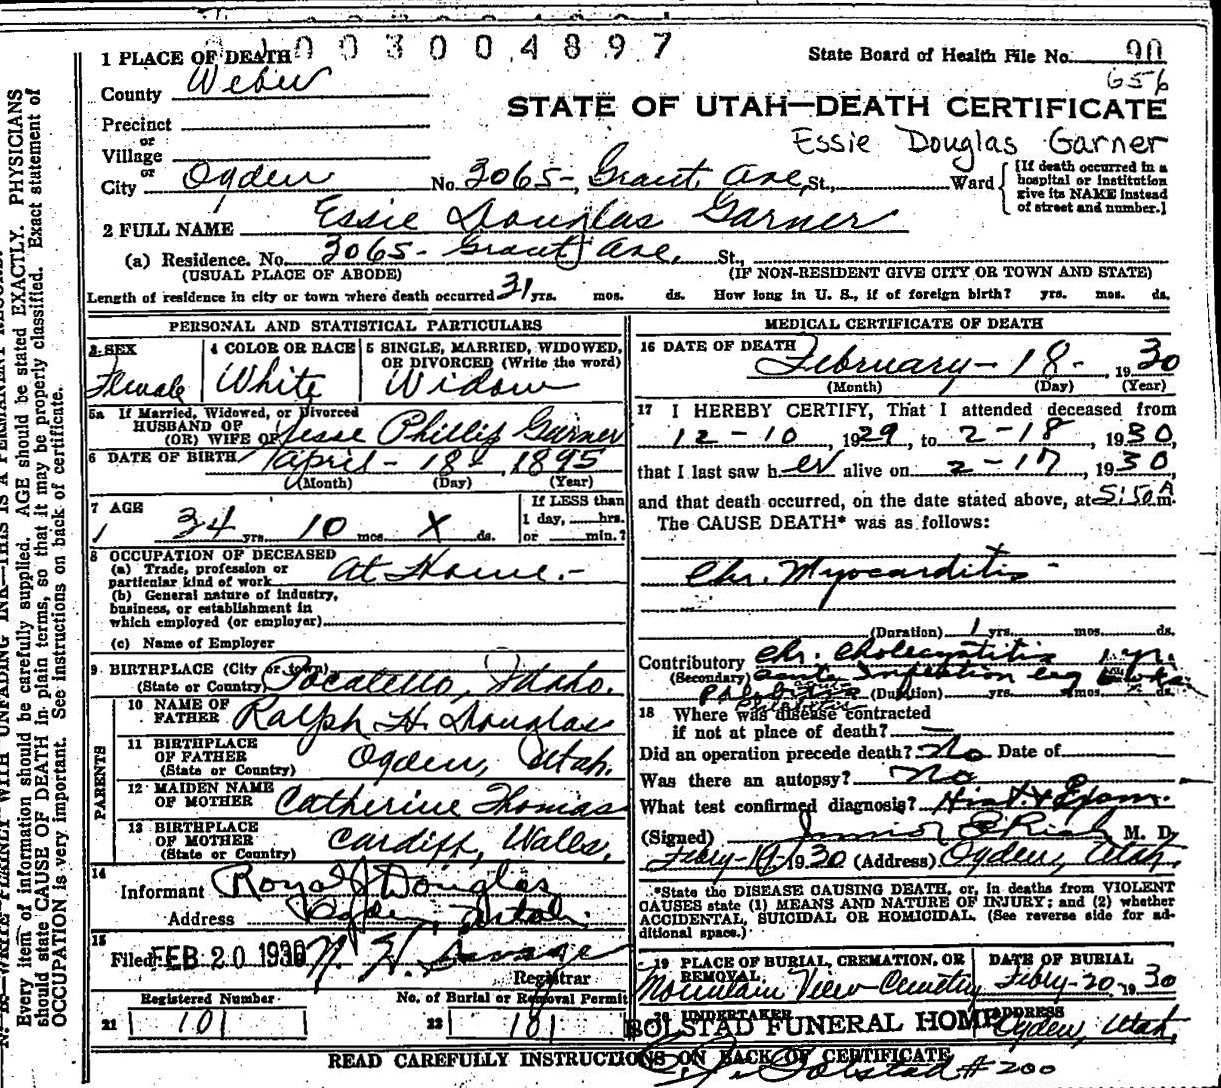 0 1 0 0 3 0 0 4 8 9 7
1 PLACE OF DEATH
State Board of Health File No. 90
656
County Weber
STATE OF UTAH—DEATH CERTIFICATE
Precinct
or
Village
Essie Douglas Garner
or
City Ogden No. 3065- Grant Ave, St., Ward
[If death occurred in a
hospital or institution
give its NAME instead
of street and number.]
2 FULL NAME Essie Douglas Garner
(a) Residence. No. 3065- Grant Ave, St.,
(USUAL PLACE OF ABODE) (IF NON-RESIDENT GIVE CITY OR TOWN AND STATE)
Length of residence in city or town where death occurred 31 yrs. mos. ds. How long in U. S., if of foreign birth? yrs. mos. ds.
PERSONAL AND STATISTICAL PARTICULARS
3 SEX
Female
4 COLOR OR RACE
White
5 SINGLE, MARRIED, WIDOWED,
OR DIVORCED (Write the word)
Widow
5a If Married, Widowed, or Divorced
HUSBAND OF
(OR) WIFE OF Jesse Phillip Garner
6 DATE OF BIRTH April - 18 - 1895
(Month) (Day) (Year)
7 AGE
34 yrs. 10 mos. X ds.
If LESS than
1 day, hrs.
or min.?
8 OCCUPATION OF DECEASED
(a) Trade, profession or
particular kind of work At Home.-
(b) General nature of industry,
business, or establishment in
which employed (or employer)
(c) Name of Employer
9 BIRTHPLACE (City or town)
(State or Country) Pocatello, Idaho.
PARENTS
10 NAME OF
FATHER Ralph H. Douglas
11 BIRTHPLACE
OF FATHER
(State or Country) Ogden, Utah.
12 MAIDEN NAME
OF MOTHER Catherine Thomas
13 BIRTHPLACE
OF MOTHER
(State or Country) Cardiff, Wales.
14
Informant Royal J Douglas
Address Ogden, Utah.
15
Filed FEB 20 1930
Registrar
Registered Number
21 101
No. of Burial or Removal Permit
22 101
MEDICAL CERTIFICATE OF DEATH
16 DATE OF DEATH
February - 18 - 1930
(Month) (Day) (Year)
17 I HEREBY CERTIFY, That I attended deceased from
12-10, 1929, to 2-18, 1930,
that I last saw her alive on 2-17, 1930,
and that death occurred, on the date stated above, at 5:50 A m.
The CAUSE DEATH* was as follows:
Chr. Myocarditis -
(Duration) 1 yrs. mos. ds.
Contributory Chr. Cholecystitis 1 yr.
(Secondary) acute Infection leg
Phlebitis (Duration) yrs. mos. ds.
Phlebitis
18 Where was disease contracted
if not at place of death? —
Did an operation precede death? No Date of
Was there an autopsy? No
What test confirmed diagnosis? Hist. & Exam.
(Signed) Junior E Rich M. D.
1930 (Address) Ogden, Utah.
*State the DISEASE CAUSING DEATH, or, in deaths from VIOLENT
CAUSES state (1) MEANS AND NATURE OF INJURY; and (2) whether
ACCIDENTAL, SUICIDAL OR HOMICIDAL. (See reverse side for ad-
ditional space.)
19 PLACE OF BURIAL, CREMATION, OR
REMOVAL
Mountain View Cemetery
DATE OF BURIAL
Feby-20, 1930
20 UNDERTAKER
BOLSTAD FUNERAL HOME
ADDRESS
Ogden, Utah.
READ CAREFULLY INSTRUCTIONS ON BACK OF CERTIFICATE
Bolstad #200
N. B.—WRITE PLAINLY WITH UNFADING INK—THIS IS A PERMANENT RECORD.
Every item of information should be carefully supplied. AGE should be stated EXACTLY. PHYSICIANS
should state CAUSE OF DEATH in plain terms, so that it may be properly classified. Exact statement of
OCCUPATION is very important. See instructions on back of certificate.